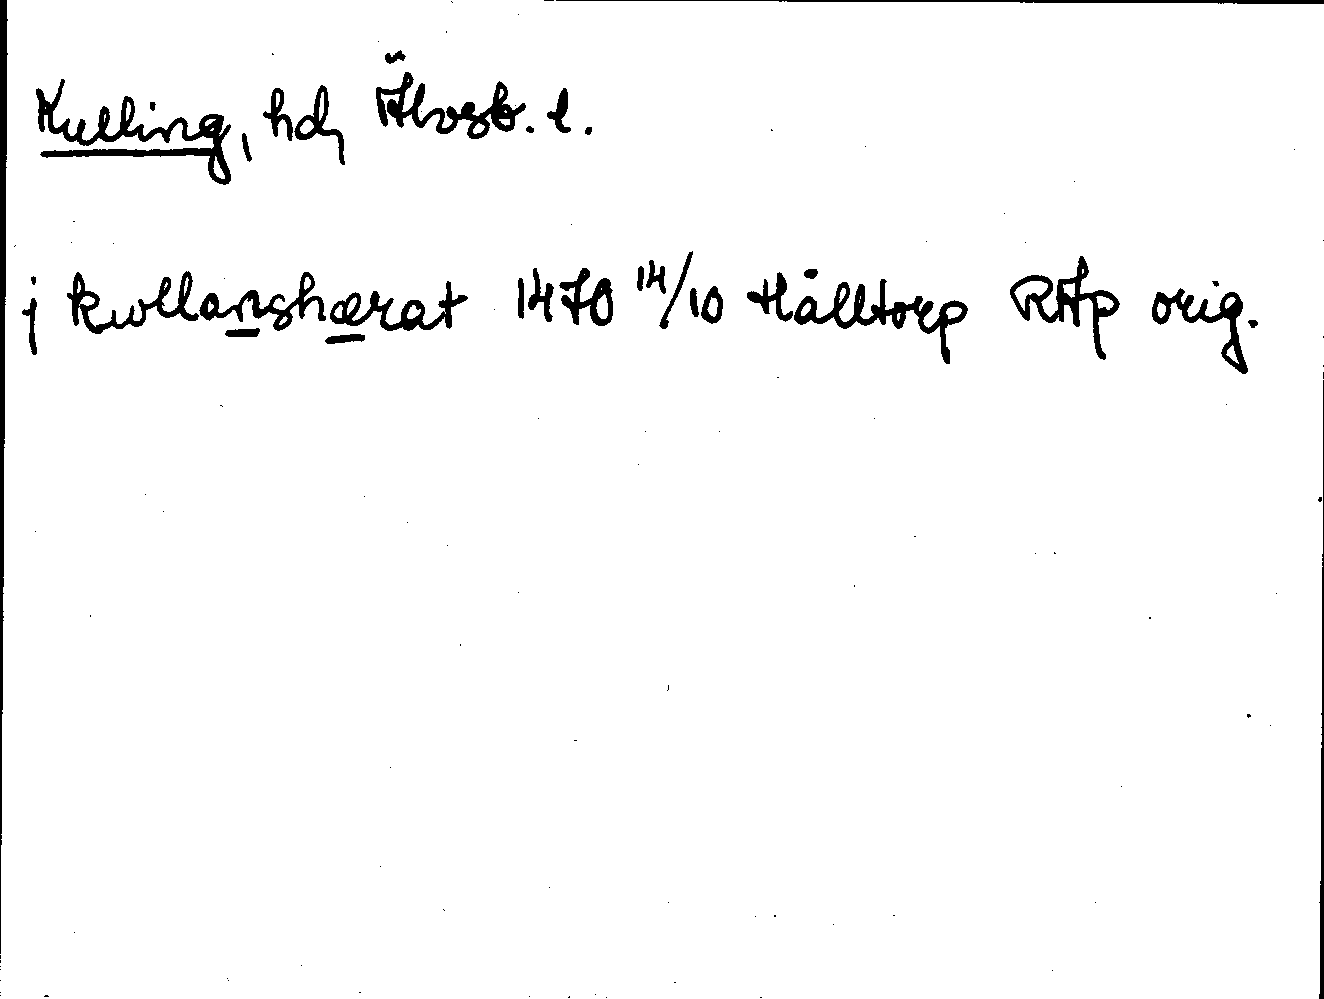 Kulling, hd, Älvsb. l.
j kwllangshærat 1470 14/10 Hålltorp RAp orig.